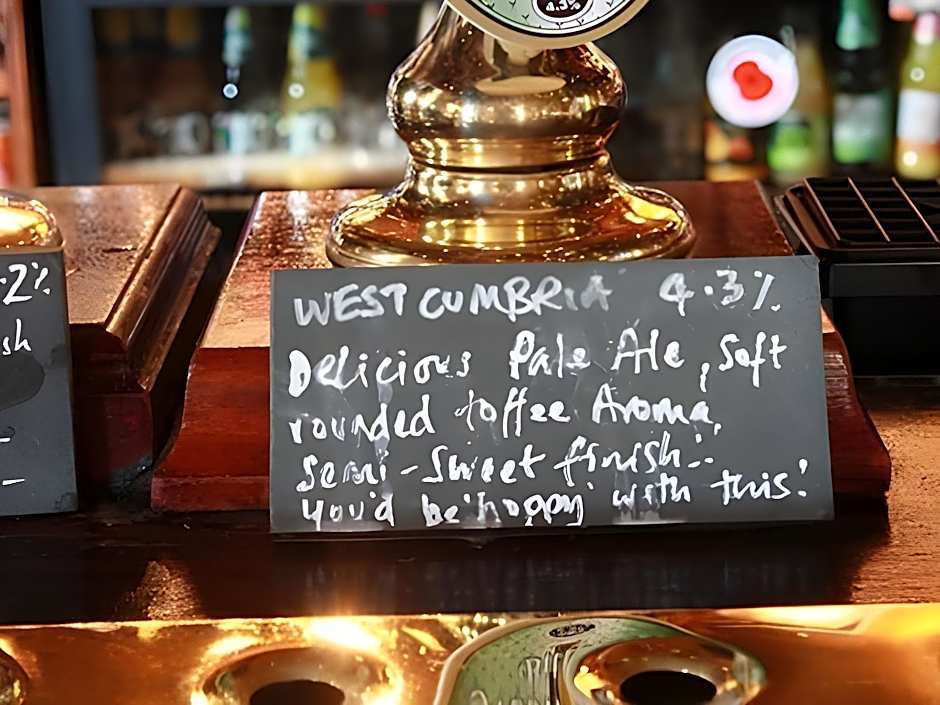 4.3%
WEST CUMBRIA 4.3%
Delicious Pale Ale, Soft
rounded toffee Aroma,
Semi-Sweet finish..
you'd be 'hoppy' with this!
.2%
sh